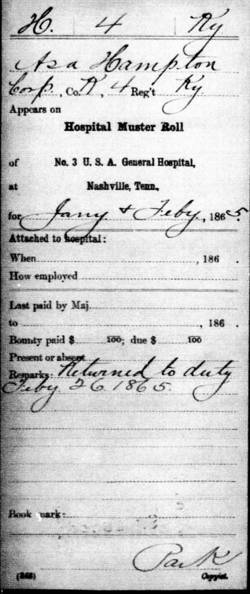 H. 4 Ky
Asa Hampton
Corp., Co. K, 4 Reg't Ky
Appears on
Hospital Muster Roll
of No. 3 U. S. A. General Hospital,
at Nashville, Tenn.,
for Jany & Feby, 1865.
Attached to hospital:
When , 186 .
How employed
Last paid by Maj.
to , 186 .
Bounty paid $ 100; due $ 100
Present or absent
Remarks: Returned to duty
Feby 26 1865.
Book mark:
Park
(343) Copyist.